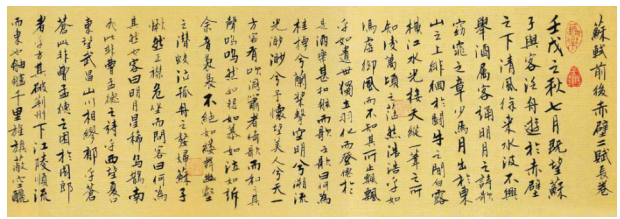 蘇軾前後赤壁二賦長卷
壬戌之秋七月既望蘇
子與客泛舟遊於赤壁
之下清風徐來水波不興
舉酒属客誦明月之詩歌
窈窕之章少焉月出於東
山之上徘徊於斗牛之間白露
橫江水光接天縱一葦之所
如凌萬頃之茫然浩浩乎如
馮虛御風而不知其所止飄飄
乎如遺世獨立羽化而登僊於
是酒樂甚扣舷而歌之歌曰
桂棹兮蘭槳擊空明兮溯流
光渺渺兮予懷望美人兮天一
方客有吹洞簫者倚歌而和之其
聲嗚嗚然如怨如慕如泣如訴
余音裊裊不絕如縷舞幽壑
之潛蛟泣孤舟之嫠婦蘇子
愀然正襟危坐而問客曰何為
其然也客曰明月星稀烏鵲南
飛此非曹孟德之詩乎西望夏口
東望武昌山川相繆郁乎蒼
蒼此非孟德之困於周郎
者乎方其破荊州下江陵順流
而東也舳艫千里旌旗蔽空釃